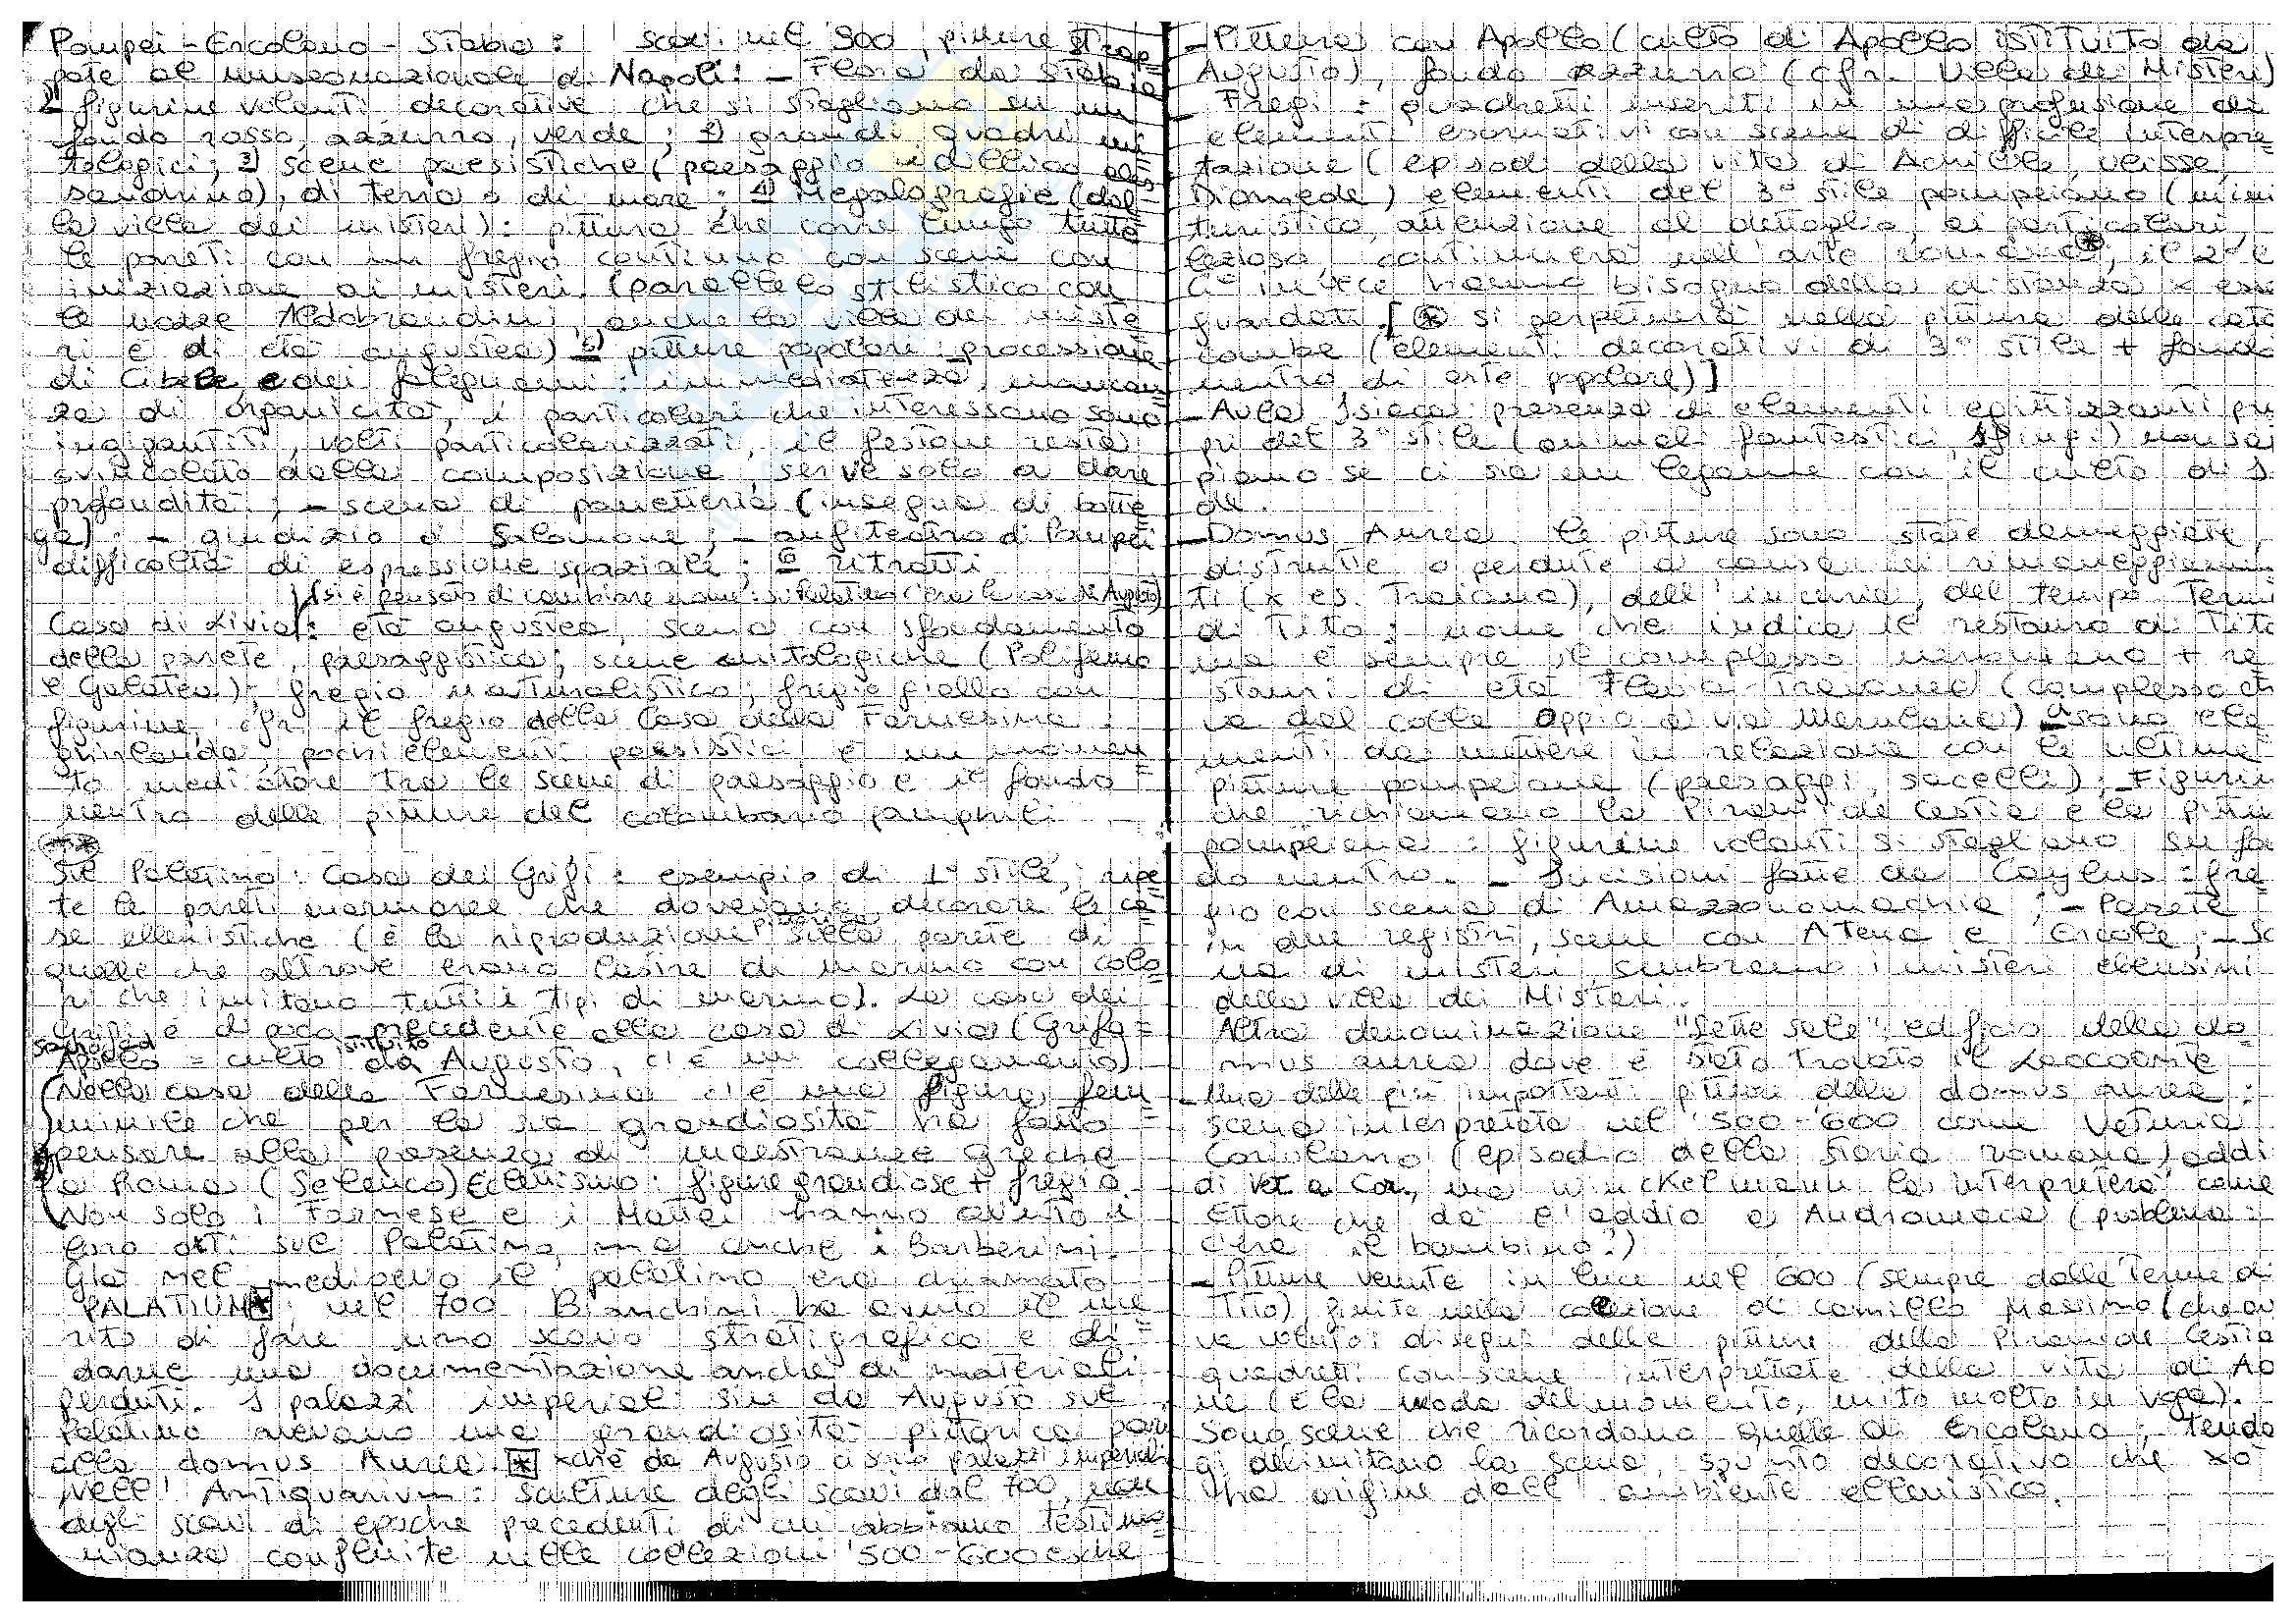 Pompei - Ercolano - Stabia: scavi nel '900, pitture strap=
pate al museo nazionale di Napoli: - Flora da Stabia
1) figurine volanti decorative che si stagliano su un
fondo rosso, azzurro, verde; 2) grandi quadri mi=
tologici; 3) scene paesistiche (paesaggio idillico ales=
sandrino), di terra o di mare; 4) Megalografie (dal=
la villa dei misteri): pittura che corre lungo tutte
le pareti con un fregio continuo con scene con
iniziazione ai misteri. (parallelo stilistico con
le nozze Aldobrandini, anche la villa dei miste
ri è di età augustea) 5) pitture popolari: processione
di Cibele, e dei falegnami: immediatezza, mancan=
za di organicità, i particolari che interessano sono
ingigantiti, volti particolarizzati, il festone resta
svincolato dalla composizione, serve solo a dare
profondità; - scena di panetteria (insegna di botte=
ga); - giudizio di Salomone; - anfiteatro di Pompei
difficoltà di espressione spaziale; 6 ritratti
(si è pensato di cambiare nome: sul Palatino c'era la casa di Augusto)
Casa di Livia: età augustea, scena con sfondamento
della parete, paesaggistica; scene mitologiche (Polifemo
e Galatea); fregio naturalistico; fregio giallo con
figurine, cfr. il fregio della Casa della Farnesina:
ghirlanda, pochi elementi paesistici è un momen=
to mediatore tra le scene di paesaggio e il fondo
neutro delle pitture del colombario pamphili
Sul Palatino: Casa dei Grifi: esempio di 1° stile, ripe=
te le pareti marmoree che dovevano decorare le ca=
se ellenistiche (è la riproduzione pittorica sulla parete di
quelle che altrove erano lastre di marmo con colo=
ri che imitano tutti i tipi di marmo). La casa dei
Grifi è di poco precedente alla casa di Livia (Grifo =
sacro ad Apollo = culto istituito da Augusto, c'è un collegamento)
Nella casa della Farnesina c'è una figura fem=
minile che per la sua grandiosità ha fatto
pensare alla presenza di maestranze greche
a Roma (Seleuco) Eclettismo: figure grandiose + fregio
Non solo i Farnese e i Mattei hanno avuto i
loro orti sul Palatino, ma anche i Barberini.
Già nel medioevo il palatino era chiamato
PALATIUM *; nel '700 Bianchini ha avuto il me=
rito di fare uno scavo stratigrafico e di
darne una documentazione anche di materiali
perduti. I palazzi imperiali sin da Augusto sul
Palatino avevano una grandiosità pittorica pari
alla domus Aurea. * xché da Augusto ci sono palazzi imperiali
Nell'Antiquarium: sculture degli scavi dal '700, non
degli scavi di epoche precedenti di cui abbiamo testimo=
nianza confluite nelle collezioni '500-'600esche
- Pittura con Apollo (culto di Apollo istituito da
Augusto), fondo azzurro (cfr. Villa dei Misteri)
- Fregi: quadretti inseriti in una profusione di
elementi esornativi con scene di difficile interpre=
tazione (episodi della vita di Achille, Ulisse,
Diomede) elementi del 3° stile pompeiano (minia
turistico, attenzione al dettaglio, ai particolari,
lezioso, continuerà nell'arte romana *, il 2° e
invece hanno bisogno della distanza x esse
guardati. [* si perpetuerà nella pittura delle cata
combe (elementi decorativi di 3° stile + fondo
neutro di arte popolare)]
- Aula Isiaca: presenza di elementi egittizzanti pro
pri del 3° stile (animali fantastici, sfingi) non sap
piamo se ci sia un legame con il culto di I
de.
- Domus Aurea: le pitture sono state danneggiate,
distrutte o perdute a causa dei rimaneggiamen
ti (x es. Traiano), dell'incuria, del tempo. Terme
di Tito: nome che indica il restauro di Tito
ma è sempre il complesso neroniano + re
stauri di età Flavia - Traianea (complesso che
va dal colle Oppio a via Merulana) - sono ele
menti da mettere in relazione con le ultime
pitture pompeiane (paesaggi, sacelli); - Figurine
che richiamano la Piramide Cestia e la pittura
pompeiana: figurine volanti si stagliano su fon
do neutro. - Incisioni fatte da Caylus: fre
gio con scena di Amazzonomachia; - Parete
in due registri, scene con Atena e Ercole; - Sce
na di misteri, sembrano i misteri eleusini
della villa dei Misteri.
Altra denominazione "Sette Sale": edificio della do
mus aurea dove è stato trovato il Laocoonte
- Una delle più importanti pitture della domus aurea:
scena interpretata nel '500-'600 come Veturia
Coriolano (episodio della storia romana) addi
di Vet. a Cor., ma Winckelmann la interpreterà come
Ettore che dà l'addio a Andromaca (problema:
c'era il bambino?)
- Pitture venute in luce nel '600 (sempre dalle Terme di
Tito) finite nella collezione di Camillo Massimo (che av
va voluto i disegni delle pitture della Piramide Cestia
quadretti con scene interpretate della vita di Ado
ne (è la moda del momento, mito molto in voga).
Sono scene che ricordano quelle di Ercolano; tenda
gi delimitano la scena, spunto decorativo che xò
ha origine dall'ambiente ellenistico.